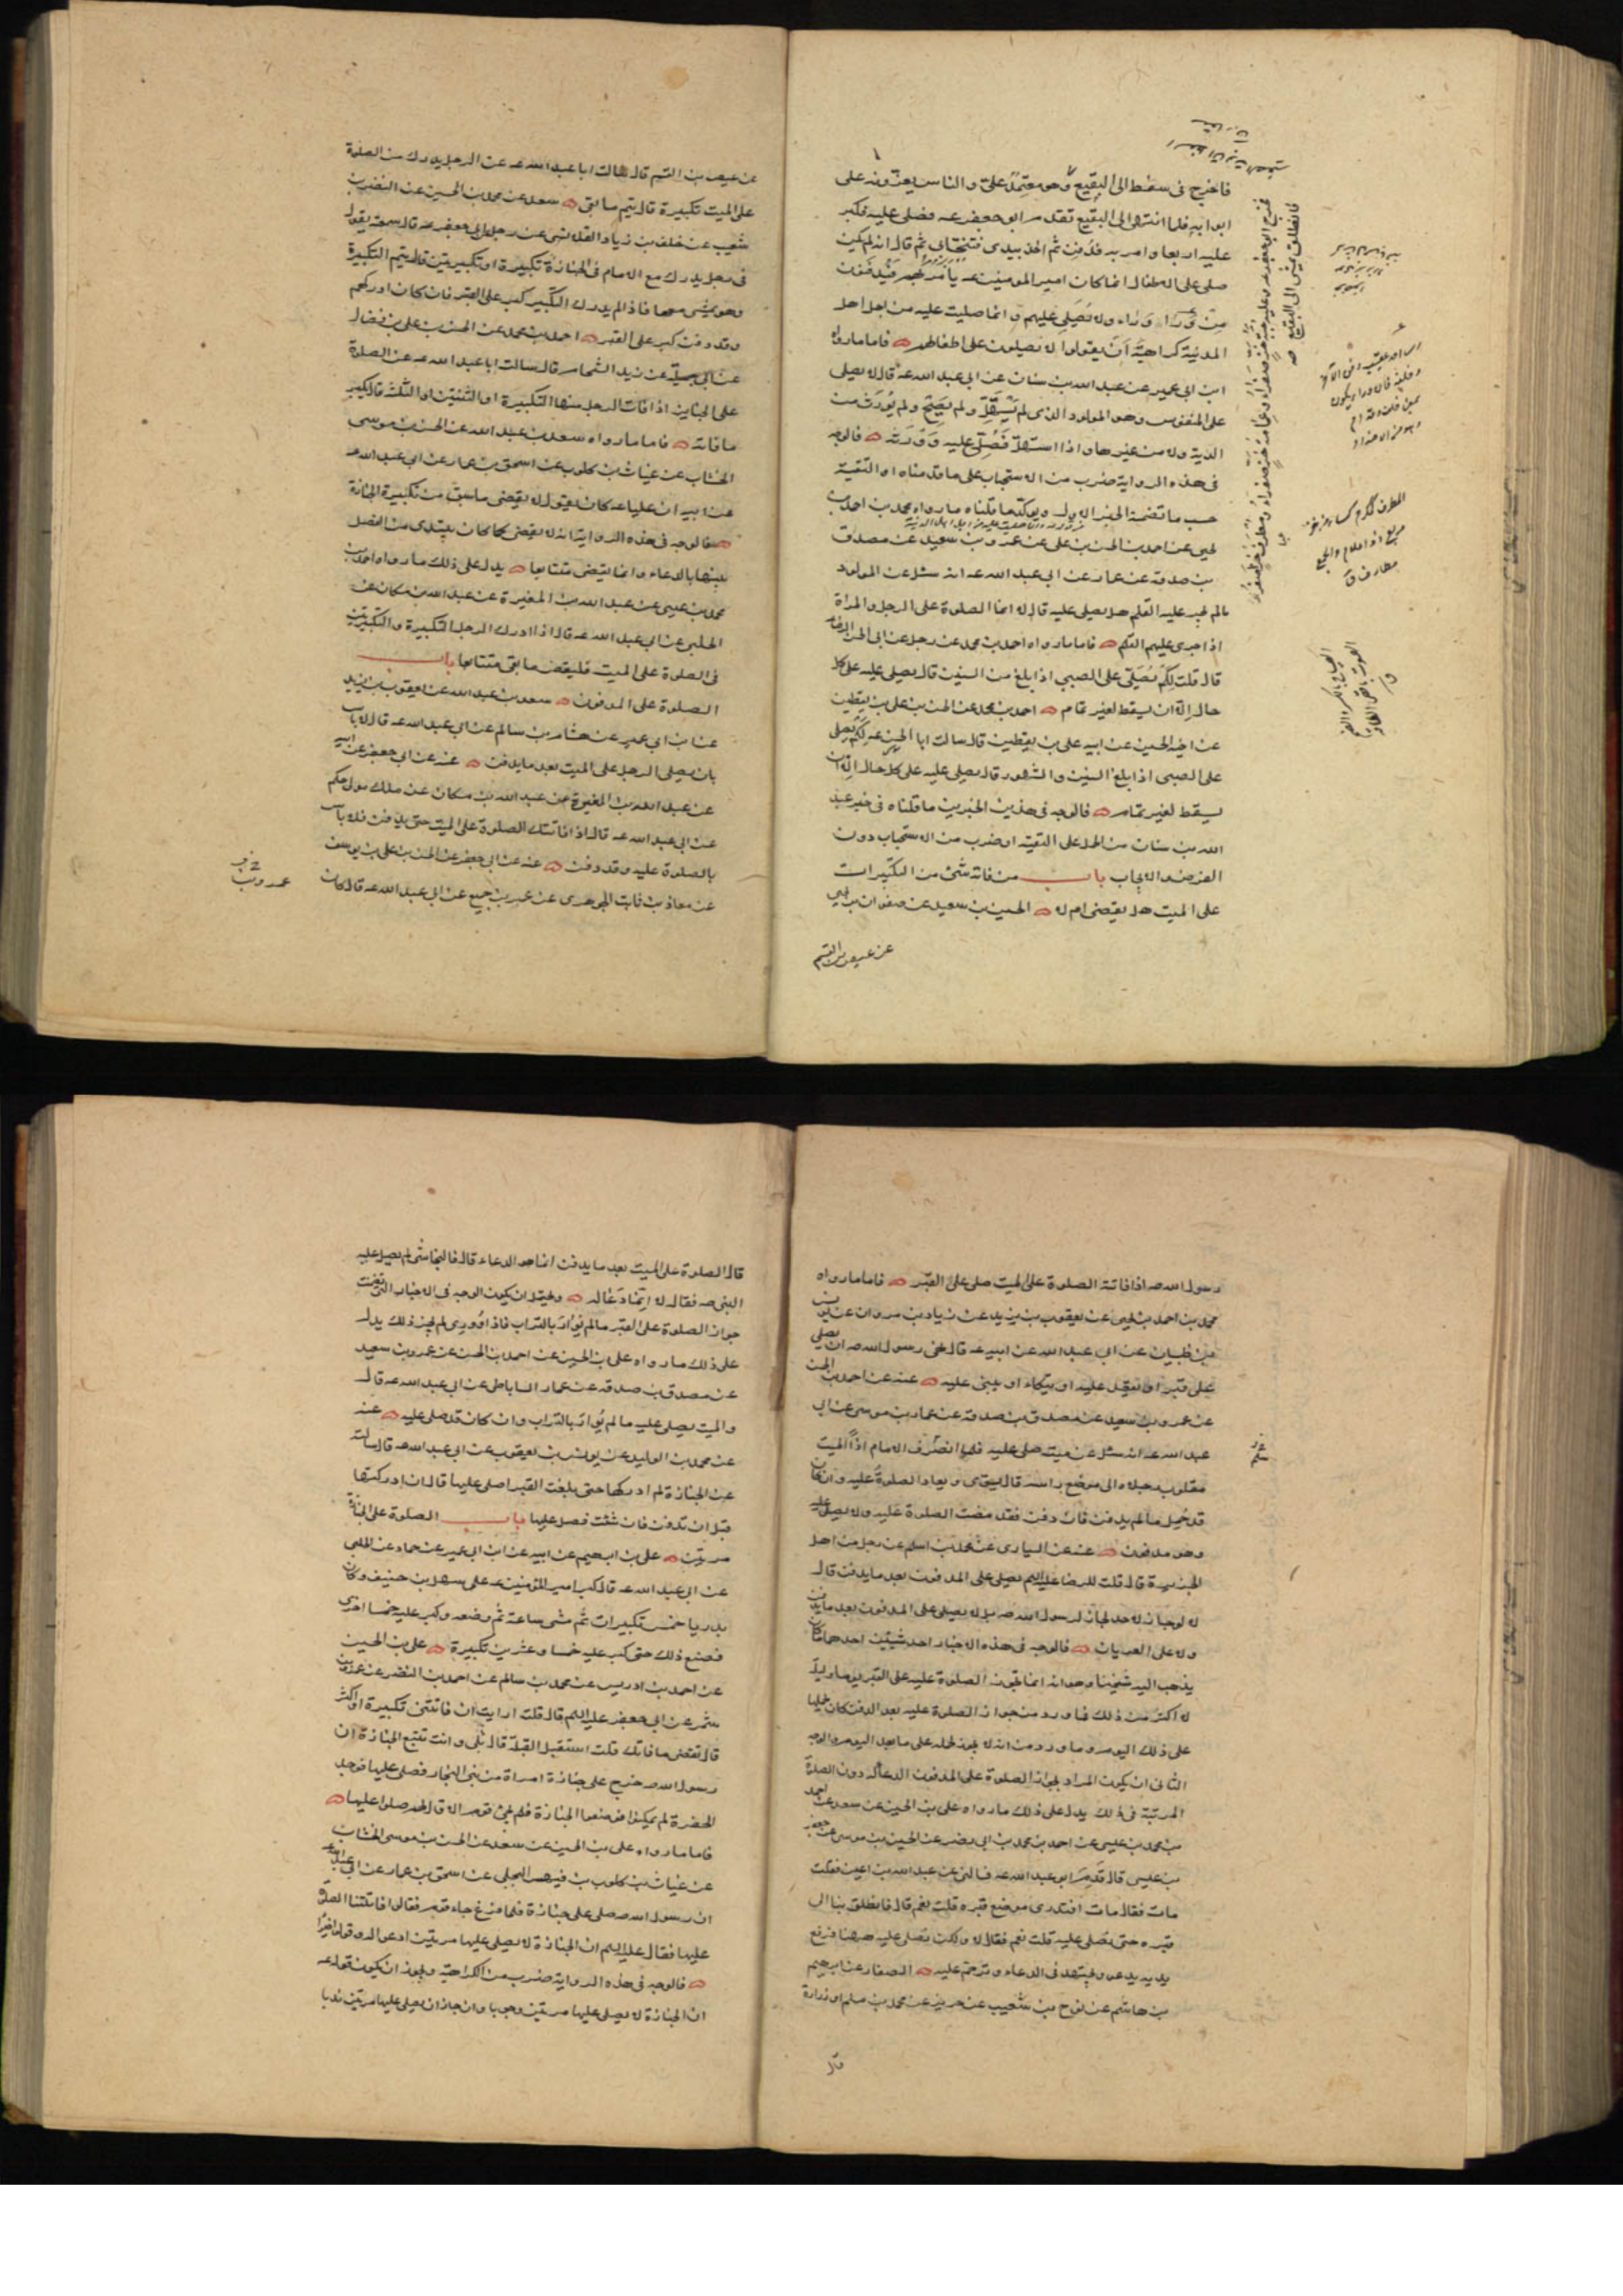 فاخرج فى سفط الى البقيع وهو معتمد على والناس يعزونه على
ابوابه فلما انتهى الى البقيع تقدم ابو جعفر عه فصلى عليه فكبر
عليه اربعا وامر به فدفن ثم اخذ بيدى فتنحى بى ثم قال انه لم يكن
يصلى على الاطفال انما كان امير المومنين عه يأمر بهم فيدفنون
من وراء وراء ولا يصلى عليهم وانما صليت عليه من اجل اهل
المدينة كراهية أن يقولوا لا يصلون على اطفالهم فاما ما رواه
ابن ابى عمير عن عبدالله بن سنان عن ابى عبدالله عه قال لا يصلى
على المنفوس وهو المولود الذى لم يستهل ولم يصح ولم يورث من
الدية ولا من غيرها واذا استهل فصل عليه وورثه فالوجه
فى هذه الرواية ضرب من الاستحباب على ما قدمناه او التقية
حسب ما تضمنه الخبر الاول ويؤكد ما قلناه ما رواه محمد بن احمد بن
يحيى عن احمد بن الحسن بن على عن عمرو بن سعيد عن مصدق
بن صدقة عن عمار عن ابى عبدالله عه انه سئل عن المولود
مالم يجر عليه القلم هل يصلى عليه قال لا انما الصلوة على الرجل والمراة
اذا جرى عليهم القلم فاما ما رواه احمد بن محمد عن رجل عن ابى الحسن الرضا
قال قلت لكم يصلى على الصبى اذا بلغ من السنين قال يصلى عليه على كل
حال إلا ان يسقط لغير تمام احمد بن محمد عن الحسن بن على بن يقطين
عن اخيه الحسين عن ابيه على بن يقطين قال سالت ابا الحسن عه لكم يصلى
على الصبى اذا بلغ السنين والشهور قال يصلى عليه على كل حال الا ان
يسقط لغير تمام فالوجه فى هذين الخبرين ما قلناه فى خبر عبد
الله بن سنان من الحمل على التقية او ضرب من الاستحباب دون
الفرض والايجاب باب من فاته شئ من التكبيرات
على الميت هل يقضى ام لا الحسين بن سعيد عن صفوان بن يحيى
عن عيص بن القسم
عن عيص بن القسم قال سالت ابا عبدالله عه عن الرجل يدرك من الصلوة
على الميت تكبيرة قال يتم ما بقى سعد عن محمد بن الحسين عن النضر بن
شعيب عن خلف بن زياد القلانسى عن رجل عن ابى جعفر عه قال سمعته يقول
فى رجل يدرك مع الامام فى الجنازة تكبيرة او تكبيرتين قال يتم التكبيرة
وهو يمشى معها فاذا لم يدرك التكبير كبر على القبر فان كان ادركهم
وقد دفن كبر على القبر احمد بن محمد عن الحسن بن على بن فضال
عن ابى جميلة عن زيد الشحام قال سالت ابا عبدالله عه عن الصلوة
على الجنايز اذا فات الرجل منها التكبيرة او الثنتين او الثلث قال يكبر
ما فاته فاما ما رواه سعد بن عبدالله عن الحسن بن موسى
الخشاب عن غياث بن كلوب عن اسحق بن عمار عن ابى عبدالله عه
عن ابيه ان عليا عه كان يقول لا يقضى ما سبق من تكبيرة الجنازة
فالوجه فى هذه الرواية انه لا يقضى كما كان يبتدى من الفصل
بينها بالدعاء وانما يقضى متتابعا يدل على ذلك ما رواه احمد بن
محمد بن عيسى عن عبدالله بن المغيرة عن عبدالله بن مسكان عن
الحلبى عن ابى عبدالله عه قال اذا ادرك الرجل التكبيرة والتكبيرتين
فى الصلوة على الميت فليقض ما بقى متتابعا باب
الصلوة على المدفون سعد بن عبدالله عن يعقوب بن يزيد
عن ابن ابى عمير عن هشام بن سالم عن ابى عبدالله عه قال لا باس
بان يصلى الرجل على الميت بعد ما يدفن عنه عن ابى جعفر عن ابيه
عن عبدالله بن المغيرة عن عبدالله بن مسكان عن ملك مولى حكم
عن ابى عبدالله عه قال اذا فاتتك الصلوة على الميت حتى يدفن فلا باس
بالصلوة عليه وقد دفن عنه عن ابى جعفر عن الحسن بن على بن يوسف
عن معاذ بن ثابت الجوهرى عن عمرو بن جميع عن ابى عبدالله عه قال كان
عمرو بن
رسول الله صه اذا فاتته الصلوة على الميت صلى على القبر فاما ما رواه
محمد بن احمد بن يحيى عن يعقوب بن يزيد عن زياد بن مروان عن يونس
بن ظبيان عن ابى عبدالله عن ابيه عه قال نهى رسول الله صه ان يصلى
على قبر او يقعد عليه او يتكاء او يبنى عليه عنه عن احمد بن الحسن
عن عمرو بن سعيد عن مصدق بن صدقة عن عمار بن موسى عن ابى
عبدالله عه انه سئل عن ميت صلى عليه فلما انصرف الامام اذا الميت
مقلوب رجلاه الى موضع راسه قال يسوى ويعاد الصلوة عليه وان كان
قد حمل مالم يدفن فان دفن فقد مضت الصلوة عليه ولا يصلى عليه
وهو مدفون عنه عن السيارى عن محمد بن اسلم عن رجل من اهل
الجزيرة قال قلت للرضا عليه السلم يصلى على المدفون بعد ما يدفن قال
لا لو جاز لاحد لجاز لرسول الله صه بل لا يصلى على المدفون بعد ما يدفن
ولا على العريان فالوجه فى هذه الاخبار احد شيئين احدهما ما كان
يذهب اليه شيخنا وهو انه انما تجوز الصلوة عليه على القبر يوما وليلة
لا اكثر من ذلك فما ورد من جواز الصلوة عليه بعد الدفن كان محمولا
على ذلك اليوم وما ورد من انه لا يجوز نحمله على ما بعد اليوم والوجه
الثانى ان يكون المراد بجواز الصلوة على المدفون الدعاء له دون الصلوة
المرتبة فى ذلك يدل على ذلك ما رواه على بن الحسين عن سعد عن احمد
بن محمد بن عيسى عن احمد بن محمد بن ابى نصر عن الحسين بن موسى عن جعفر
بن عيسى قال قدم ابو عبدالله عه فسالنى عن عبدالله بن اعين فقلت
مات فقال مات افتدرى موضع قبره قلت نعم قال فانطلق بنا الى
قبره حتى نصلى عليه قلت نعم فقال لا ولكن نصلى عليه ههنا فرفع
يديه يدعو ويجتهد فى الدعاء وترحم عليه الصفار عن ابرهيم
بن هاشم عن نوح بن شعيب عن حريز عن محمد بن مسلم او زرارة
قال
قال الصلوة على الميت بعد ما يدفن انما هو الدعاء قال فالنجاشى لم يصل عليه
النبى صه فقال لا إنما دعا له ويحتمل ان يكون الوجه فى الاخبار التى تضمنت
جواز الصلوة على القبر مالم يوار بالتراب فاذا ووري لم يجز ذلك يدل
على ذلك ما رواه على بن الحسين عن احمد بن الحسن عن عمرو بن سعيد
عن مصدق بن صدقة عن عمار الساباطى عن ابى عبدالله عه قال
والميت يصلى عليه مالم يوار بالتراب وان كان قد صلى عليه عنه
عن محمد بن الوليد عن يونس بن يعقوب عن ابى عبدالله عه قال سالته
عن الجنازة لم ادركها حتى بلغت القبر اصلى عليها قال ان ادركتها
قبل ان تدفن فان شئت فصل عليها باب الصلوة على الجنازة
مرتين على بن ابرهيم عن ابيه عن ابن ابى عمير عن حماد عن الحلبى
عن ابى عبدالله عه قال كبر امير المؤمنين عه على سهل بن حنيف وكان
بدريا خمس تكبيرات ثم مشى ساعة ثم وضعه وكبر عليه خمسا اخرى
فصنع ذلك حتى كبر عليه خمسا وعشرين تكبيرة على بن الحسين
عن احمد بن ادريس عن محمد بن سالم عن احمد بن النضر عن عمرو بن
شمر عن ابى جعفر عليه السلم قال قلت ارايت ان فاتتنى تكبيرة او اكثر
قال تقضى ما فاتك قلت استقبل القبلة قال بلى وانت تتبع الجنازة ان
رسول الله صه خرج على جنازة امراة من بنى النجار فصلى عليها فوجد
الحفرة لم يمكنوا فوضعوا الجنازة فلم يجئ قوم الا قال لهم صلوا عليها
فاما ما رواه على بن الحسين عن سعد عن الحسن بن موسى الخشاب
عن غياث بن كلوب بن فيهس البجلى عن اسحق بن عمار عن ابى عبدالله
ان رسول الله صه صلى على جنازة فلما فرغ جاء قوم فقالوا فاتتنا الصلوة
عليها فقال عليه السلم ان الجنازة لا يصلى عليها مرتين ادعوا له وقولوا خيرا
فالوجه فى هذه الرواية ضرب من الكراهية ويجوز ان يكون قوله عه
ان الجنازة لا يصلى عليها مرتين وجوبا وان جاز ان يصلى عليها مرتين ندبا